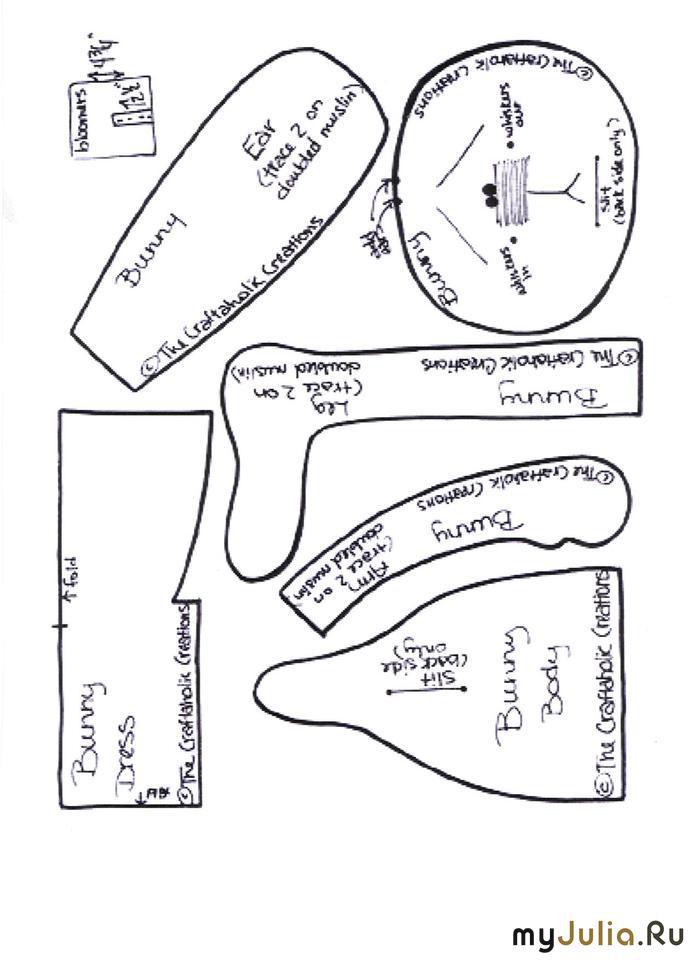 bloomers
4 3/4"
12 1/2"
Bunny
Ear
(trace 2 on
doubled muslin)
©The Craftaholic Creations
©The Craftaholic Creations
Bunny
whiskers
out
whiskers
in
slit
(back side only)
Leg
(trace 2 on
doubled muslin)
©The Craftaholic Creations
Bunny
©The Craftaholic Creations
Bunny
Arm
(trace 2 on
doubled muslin)
↑ fold
Bunny
Dress
©The Craftaholic Creations
Slit
(back side
only)
Bunny
Body
©The Craftaholic Creations
myJulia.Ru